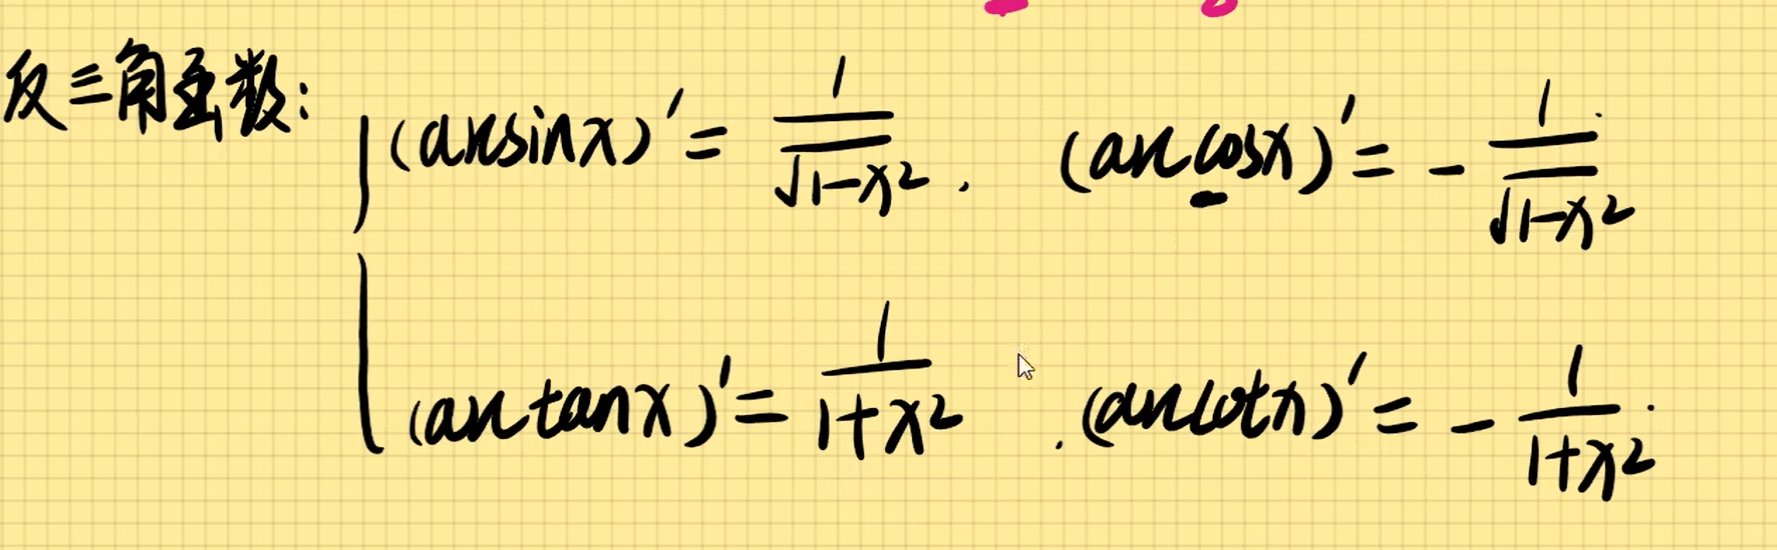 反三角函数:
(arcsinx)′ = 1/√(1-x²) . (arccosx)′ = - 1/√(1-x²)
(arctanx)′ = 1/(1+x²) . (arccotx)′ = - 1/(1+x²)